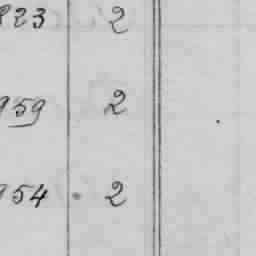 823 2
959 2
954 2